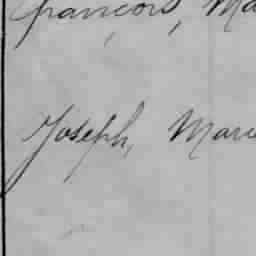 françois, Ma
Joseph, Marie